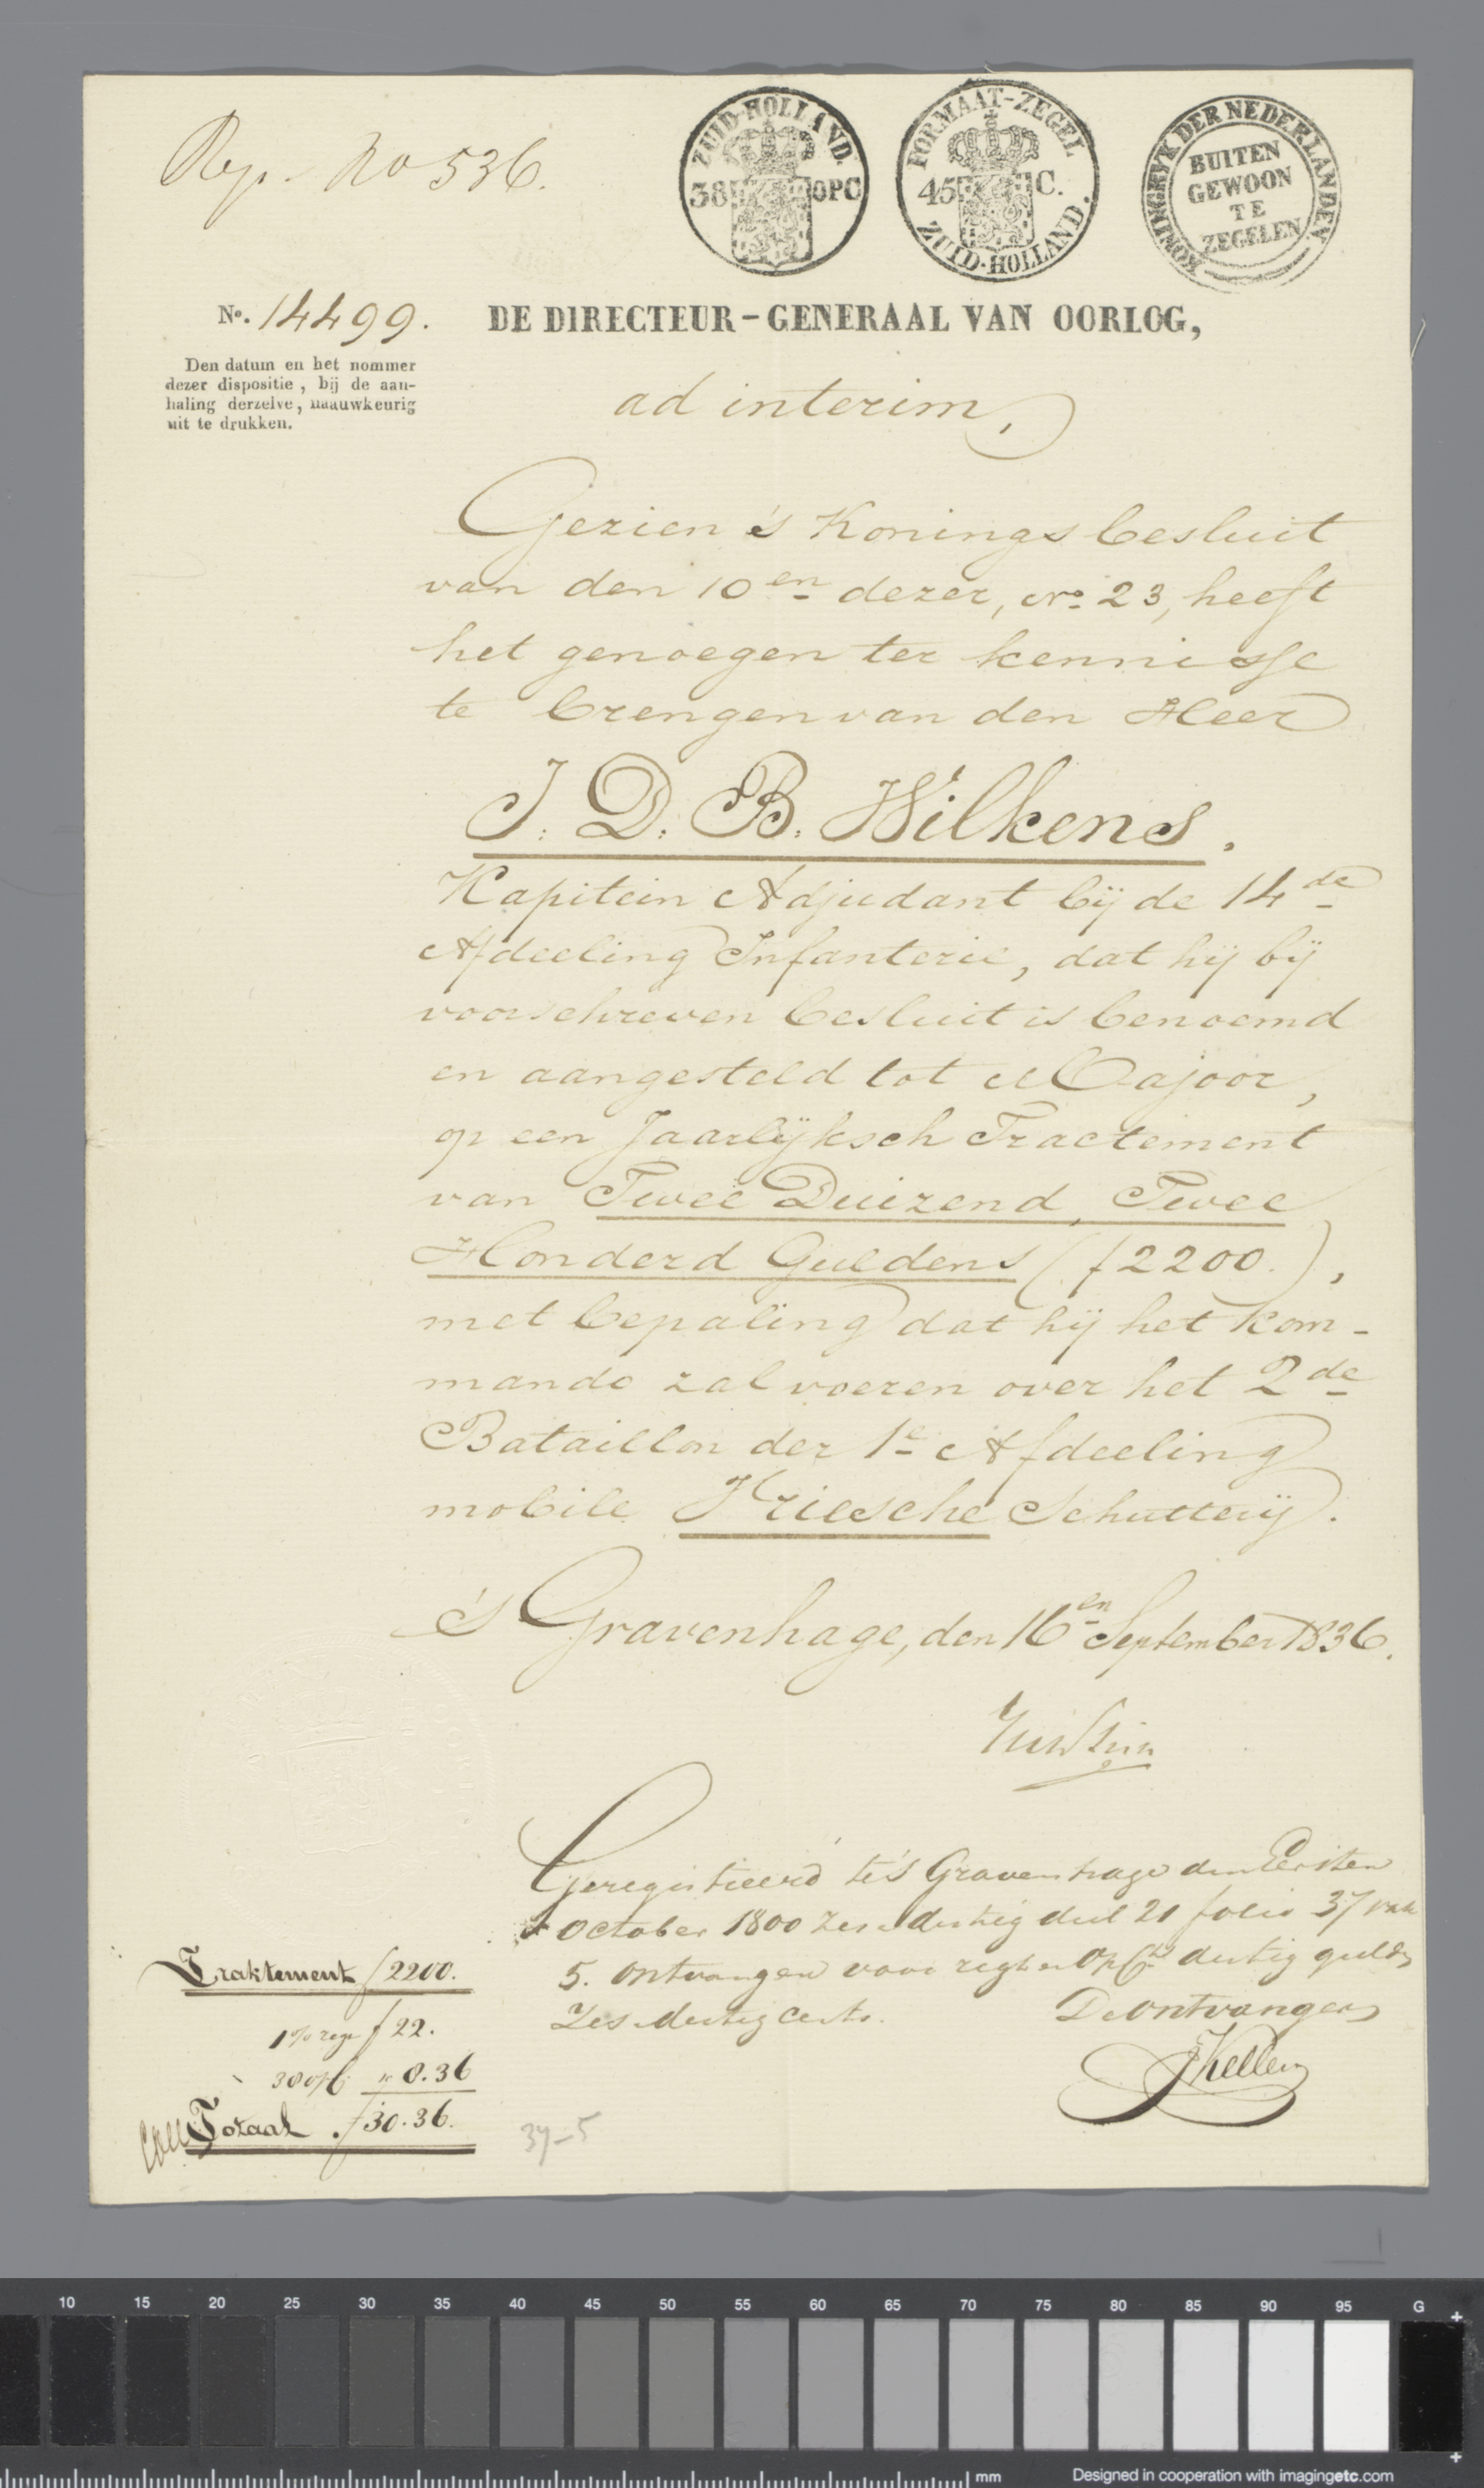 Rep. No 536.
ZUID-HOLLAND.
38 OPC
FORMAAT-ZEGEL
45 C.
ZUID-HOLLAND.
KONINGRYK DER NEDERLANDEN
BUITEN
GEWOON
TE
ZEGELEN
No. 14499.
DE DIRECTEUR-GENERAAL VAN OORLOG,
Den datum en het nommer
dezer dispositie, bij de aan-
haling derzelve, naauwkeurig
uit te drukken.
ad interim,
Gezien 's Konings besluit
van den 10en dezer, No. 23, heeft
het genoegen ter kennisse
te brengen van den Heer
J. D. B. Wilkens.
Kapitein Adjudant bij de 14de
Afdeeling Infanterie, dat hij bij
voorschreven besluit is benoemd
en aangesteld tot Majoor,
op een Jaarlijksch Tractement
van Twee Duizend, Twee
Honderd Guldens (f 2200.),
met bepaling dat hij het kom-
mando zal voeren over het 2de
Bataillon der 1e Afdeeling
mobile Friesche Schutterij.
's Gravenhage, den 16en September 1836.
Geregistreerd te 's Gravenhage den Eersten
October 1800 zes en dertig deel 21 folio 37 vak
5. Ontvangen voor regt en opCts dertig guldn
Zes dertig Cents.
De Ontvanger
JKeller
Traktement f 2200.
1% regt f 22.
38 opC " 8.36
Totaal f 30.36.
37-5
10 15 20 25 30 35 40 45 50 55 60 65 70 75 80 85 90 95 G
mm
Designed in cooperation with imagingetc.com